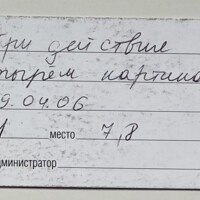 При действие
тырем картина
9.04.06
1 место 7,8
дминистратор